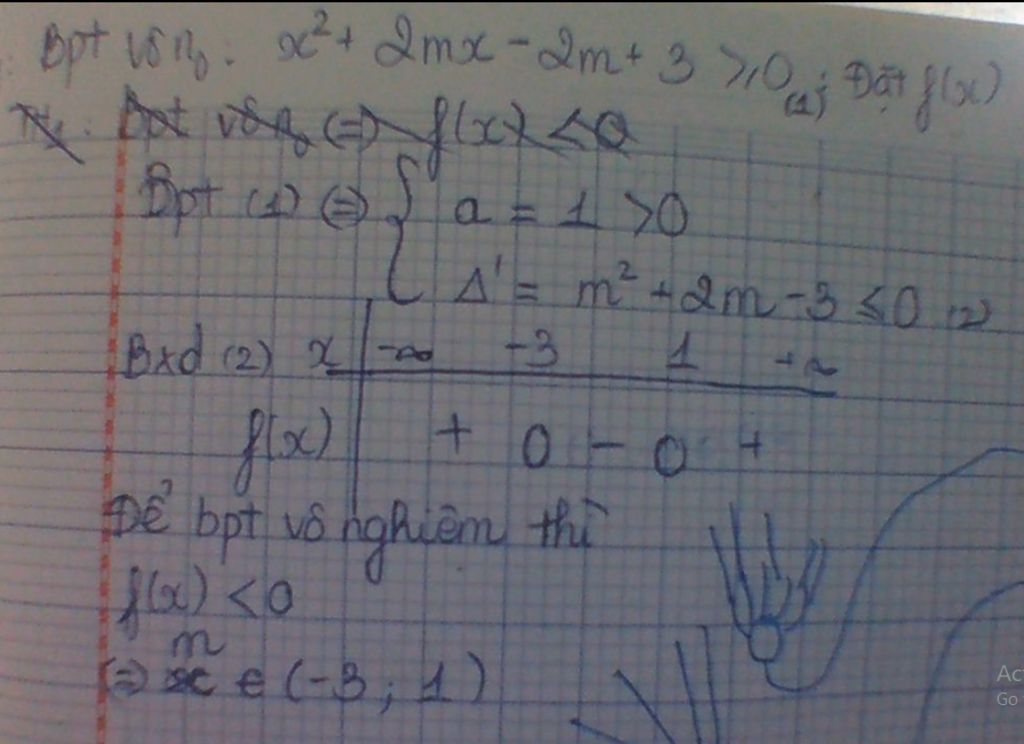 Bpt vô n₀: x² + 2mx - 2m + 3 ≥ 0 (1); Đặt f(x)
Bpt vô n₀ (=) f(x) < 0
Bpt (1) (=) { a = 1 > 0
Δ' = m² + 2m - 3 ≤ 0 (2)
Bxd (2) x | -∞ -3 1 +∞
f(x) | + 0 - 0 +
Để bpt vô nghiệm thì
f(x) < 0
m
(=) x ∈ (-3; 1)
Ac
Go